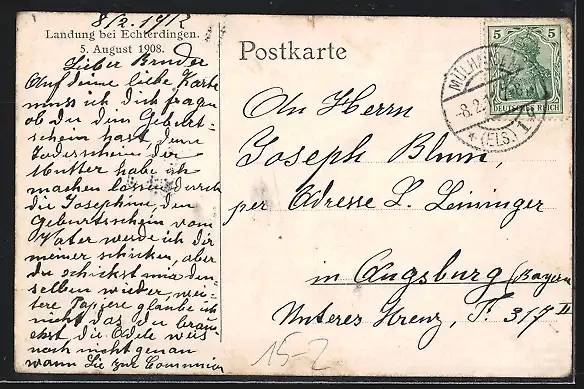 8/2. 1912
Landung bei Echterdingen.
5. August 1908.
Lieber Bruder
Auf deine liebe Karte
muss ich dich fragen
ob du dein Geburt-
schein hast, denn
Todesschein der
Mutter habe ich
machen lassen durch
die Josephine, den
Geburtsschein vom
Vater werde ich dir
meiner schicken, aber
du schickst mir den-
selben wieder, wei-
tere Papiere glaube ich
nicht das du brau-
chst, die Adele weis
noch nicht genau
wann Sie zur Communion
Postkarte
An Herrn
Joseph Blum,
per Adresse L. Leininger
in Augsburg (Bayern
Unteres Kreuz, F. 317 II
15-2
5 5
DEUTSCHES REICH
MÜLHAUSEN
-8.2.12
(ELS.) 1